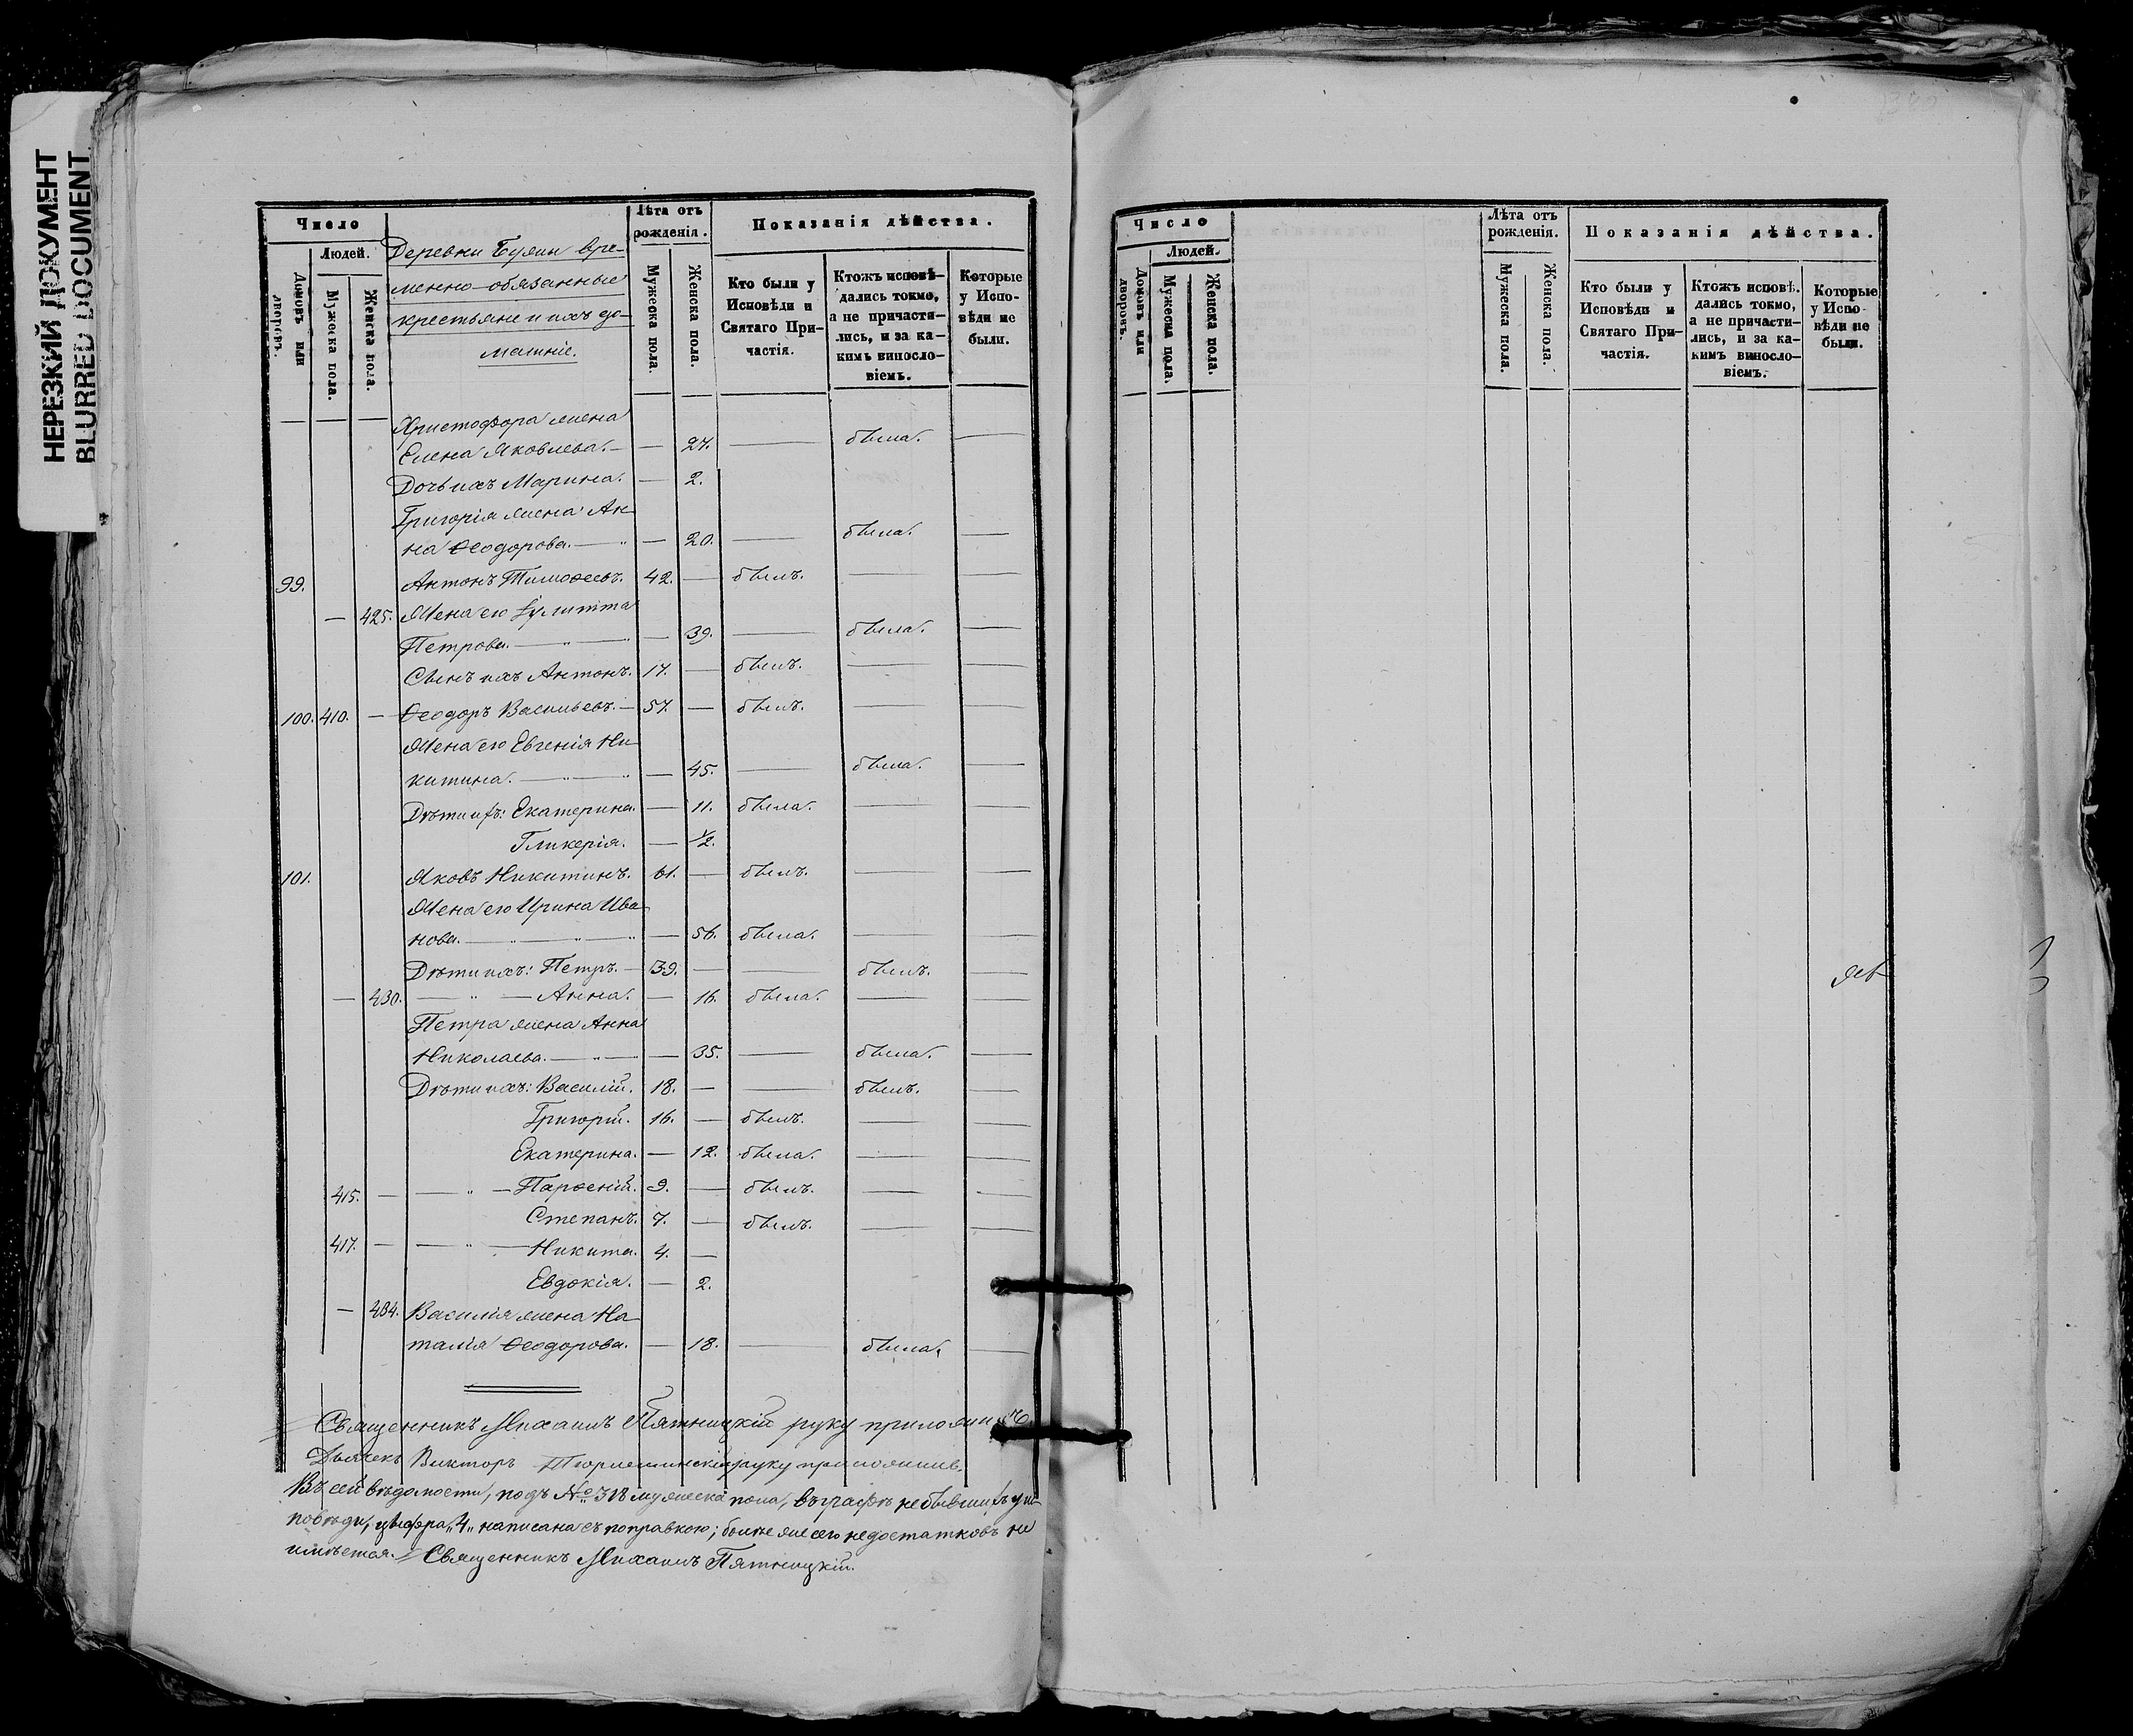 НЕРЕЗКИЙ ДОКУМЕНТ
BLURRED DOCUMENT
Число
Людей.
Домовъ или дворовъ.
Мужеска пола.
Женска пола.
Деревни Буяни вре-
менно-обязанные
крестьяне и ихъ до-
машніе.
Лѣта отъ рожденія.
Мужеска пола.
Женска пола.
Показанія дѣйства.
Кто были у Исповѣди и Святаго При-частія.
Ктожъ исповѣ-дались токмо, а не причасти-лись, и за ка-кимъ винosло-віемъ.
Которые у Испо-вѣди не были.
— — — Христофора жена
Елена Яковлева. — — 27. — была. —
Дочь ихъ Марина. — 2.
Григорія жена Ан-
на Ѳеодорова. — „ — 20. — была. —
99. Антонъ Тимоѳеевъ. 42. — былъ. — —
— 425. Жена его Iулитта
Петрова. — „ — — 39. — была. —
Сынъ ихъ Антонъ. 17. — былъ. — —
100. 410. — Ѳеодоръ Васильевъ. — 57. — былъ. —
Жена его Евгенія Ни-
китина. — „ — „ — 45. — была. —
Дѣти ихъ: Екатерина. — 11. была. — —
Гликерія. — 1/2.
101. Яковъ Никитинъ. 61. — былъ. — —
Жена его Ирина Ива-
нова. — „ — „ — „ — 56. была. — —
Дѣти ихъ: Петръ. — 39. — — былъ. —
— 430. — „ — Анна. — 16. была. — —
Петра жена Анна
Николаева. — „ — — 35. — была. —
Дѣти ихъ: Василій. 18. — — былъ. —
Григорій. 16. — былъ. — —
Екатерина. — 12. была. — —
415. — — „ — Парѳеній. 9. — былъ. — —
Степанъ. 7. — былъ. — —
417. — — „ — Никита. 4. —
Евдокія. — 2.
— 434. Василія жена На-
талія Ѳеодорова. — 18. — была. —
Священникъ Михаилъ Пятницкій руку приложилъ
Дьячекъ Викторъ руку приложилъ.
Въ сей вѣдомости, подъ № 318 мужеска пола, въ графѣ не бывшихъ у ис-
повѣди, цыфра „4„ написана съ поправкою; болѣе же сего недостатковъ не
имѣется. Священникъ Михаилъ Пятницкій.
Число
Людей.
Домовъ или дворовъ.
Мужеска пола.
Женска пола.
Лѣта отъ рожденія.
Мужеска пола.
Женска пола.
Показанія дѣйства.
Кто были у Исповѣди и Святаго При-частія.
Ктожъ исповѣ. дались токмо, а не причасти-лись, и за ка-кимъ виносло-віемъ.
Которые у Испо-вѣди не были.